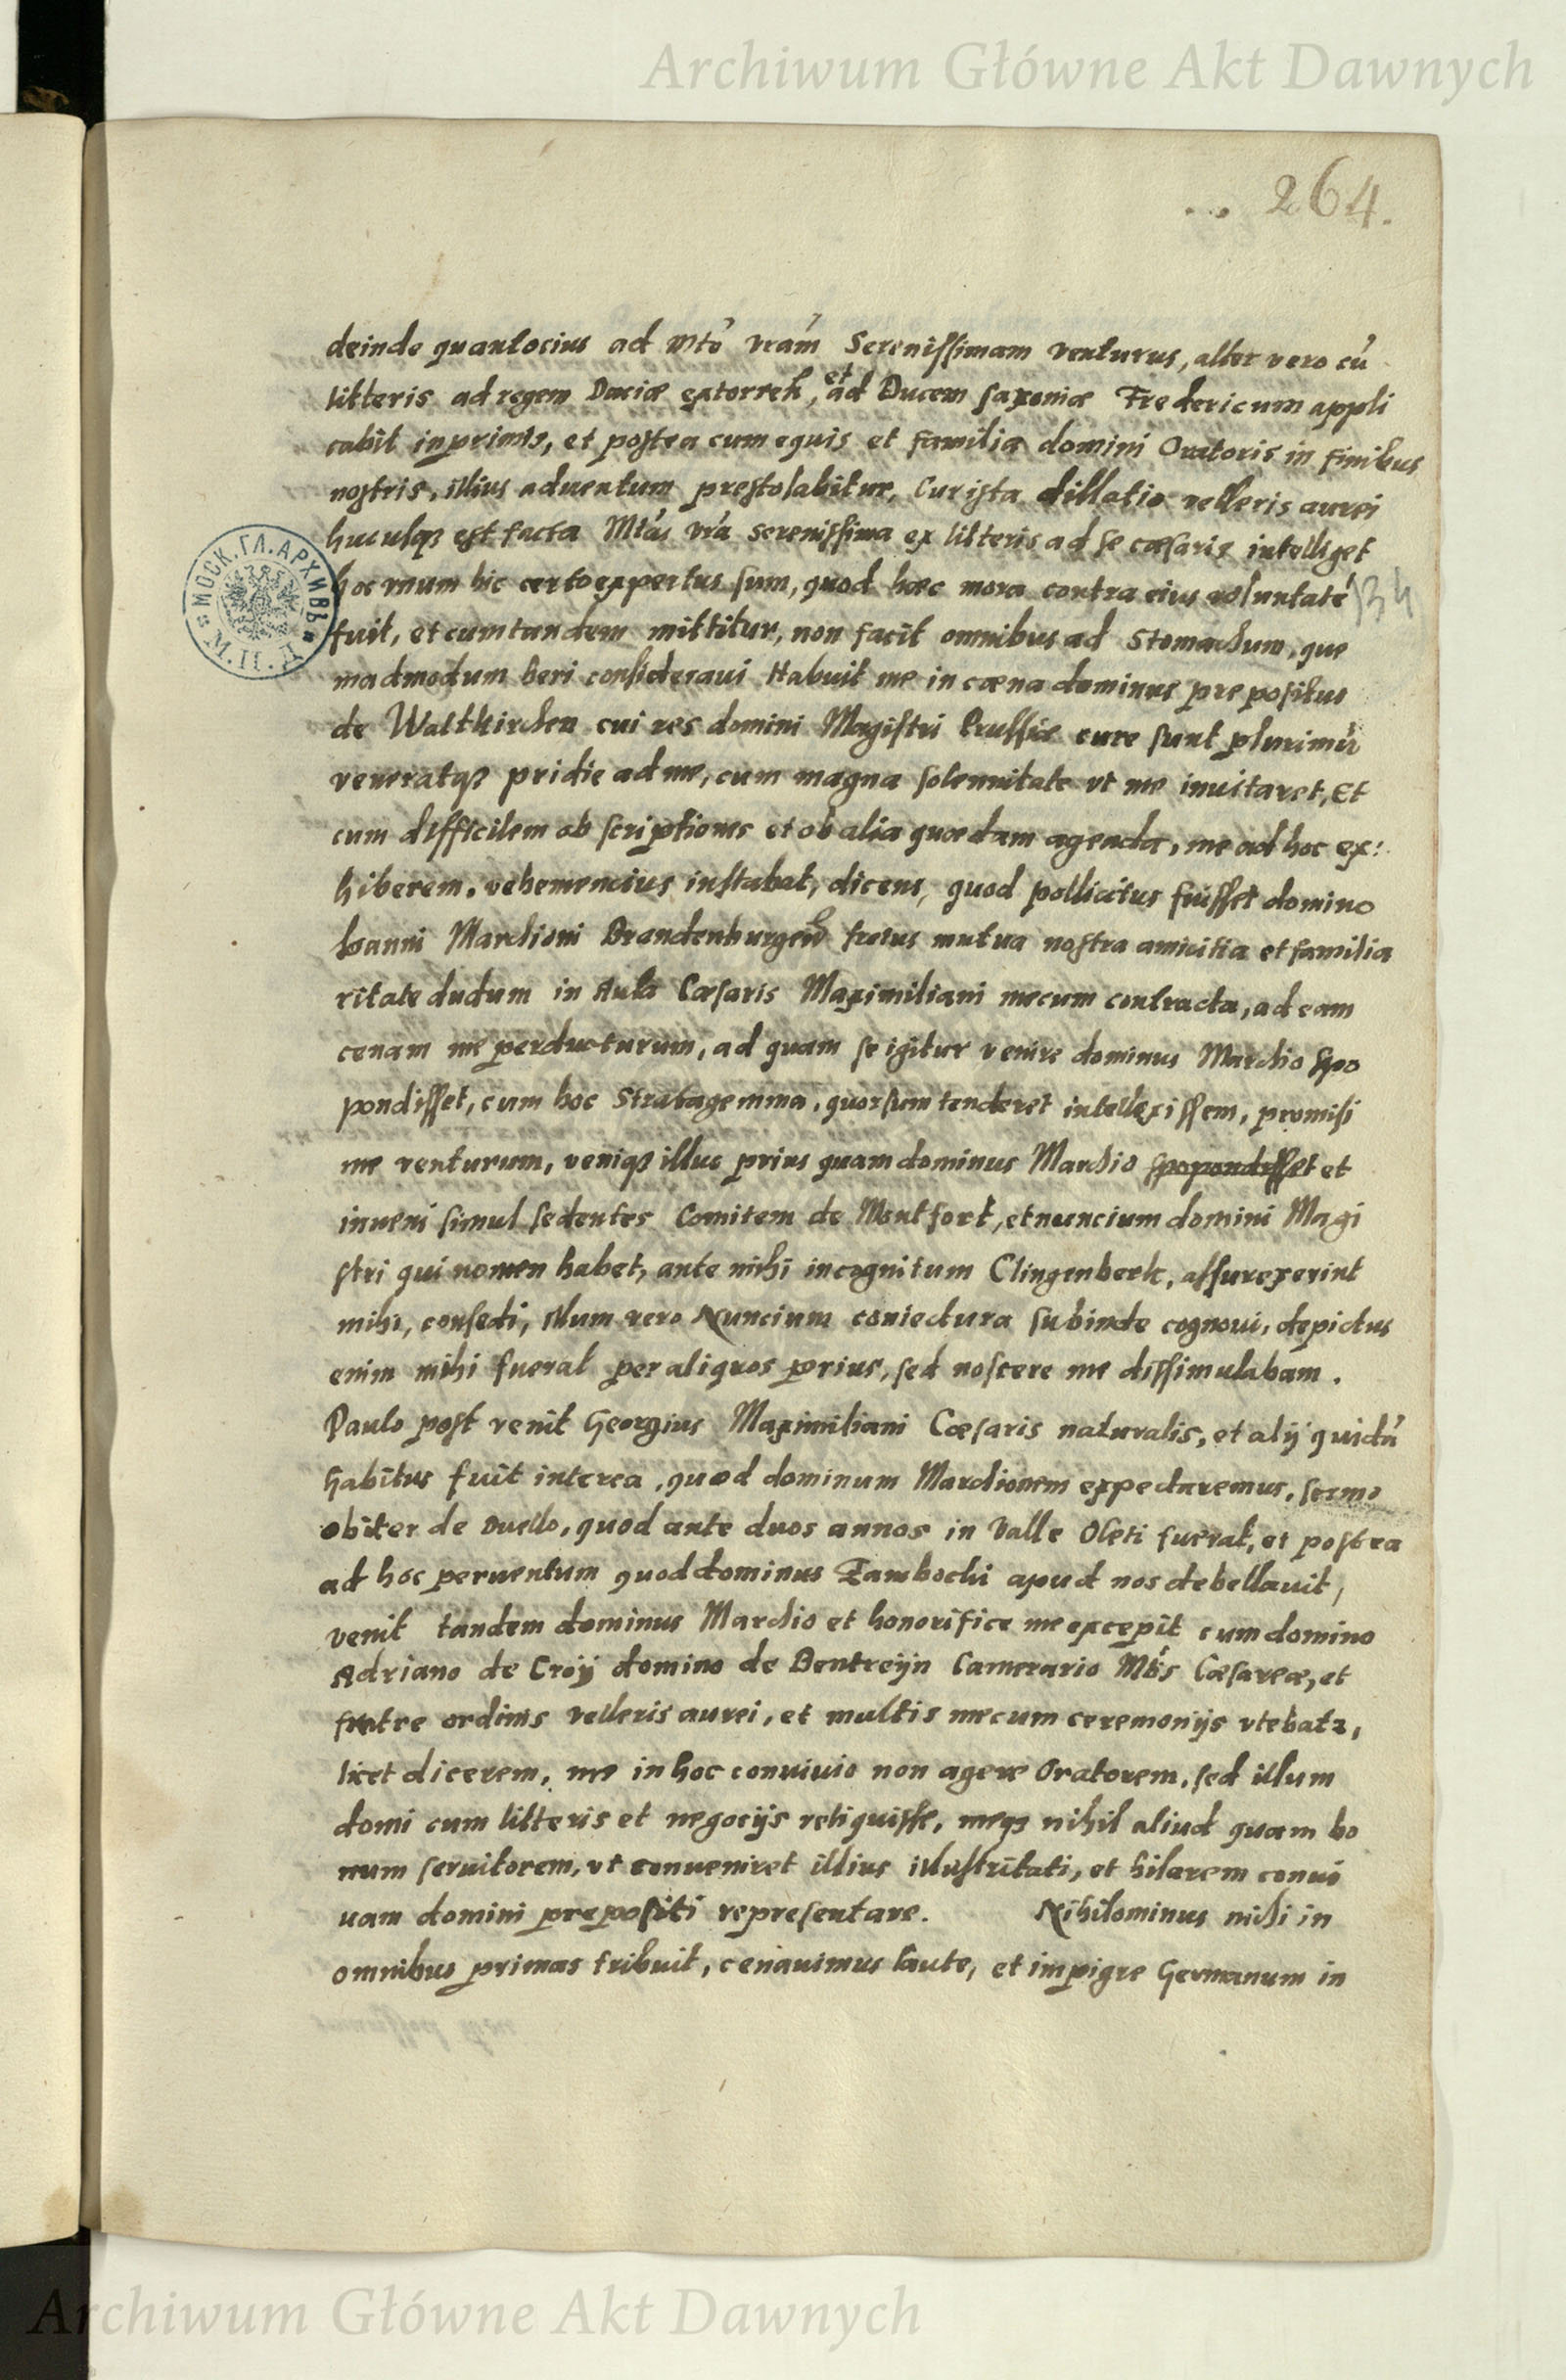 Archiwum Główne Akt Dawnych
264.
deinde quantocius ad Mtē vrām Serenissimam venturus, alter vero cū
litteris ad regem Daciæ extorrem, et ad Ducem Saxoniæ Fredericum appli
cabit inprimis, et postea cum equis et familia domini Oratoris in finibus
nostris, illius aduentum prestolabitur, Cur ista dillatio velleris aurei
hucusqꝫ est facta Mtás vrá serenissima ex litteris ad se cæsaris intelliget
hoc vnum hic certo expertus sum, quod hæc mora contra eius voluntaté
fuit, et cum tandem mittitur, non facit omnibus ad Stomachum, que
madmodum heri consideraui Habuit me in cæna dominus prepositus
de Waltkirchen cui res domini Magistri Prussiæ cure sunt plurimū
veneratqꝫ pridie ad me, cum magna solennitate vt me inuitaret, Et
cum difficilem ob scriptiones et ob alia quædam agenda, me ad hoc ex:
hiberem, vehemencius instabat, dicens, quod pollicitus fuisset domino
Ioanni Marchioni Brandenburgeñ fretus mutua nostra amicitia et familia
ritate dudum in Aula Cæsaris Maximiliani mecum contracta, ad eam
cenam me perducturum, ad quam se igitur venire dominus Marchio spo
pondisset, cum hoc Stratagemma, quorsum tenderet intellexissem, promisi
me venturum, veniqꝫ illuc prius quam dominus Marchio spopondisset et
inueni simul sedentes Comitem de Montfort, et nuncium domini Magi
stri qui nomen habet, ante mihi incognitum Clingenberk, assurexerint
mihi, consedi, illum vero Nuncium coniectura subinde cognoui, depictus
enim mihi fuerat per aliquos prius, sed noscere me dissimulabam.
Paulo post venit Georgius Maximiliani Cæsaris naturalis, et alij quidā
habitus fuit interea, quod dominum Marchionem expectaremus, sermo
obiter de Duello, quod ante duos annos in Valle Oleti fuerat, et postea
ad hoc peruentum quod dominus Tambochi apud nos debellauit,
venit tandem dominus Marchio et honorifice me excepit cum domino
Adriano de Croÿ domino de Bentreijn Camerario Mtis Cæsareæ, et
fratre ordinis velleris aurei, et multis mecum ceremonijs vtebatꝛ,
licet dicerem, me in hoc conuiuio non agere Oratorem, sed illum
domi cum litteris et negocijs reliquisse, meqꝫ nihil aliud quam bo
num seruitorem, vt conueniret illius illustritati, et hilarem conui
uam domini prepositi representare. Nihilominus michi in
omnibus primas tribuit, cenauimus laute, et impigre Germanum in
МОСК. ГЛ. АРХИВЪ
М. И. Д.
Archiwum Główne Akt Dawnych